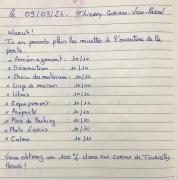 Le 09/03/24.
Waouh!
Tu en prends plein les mirettes à l'ouverture de la
porte.
* Aménagement : 10/10
* Décoration : 10/10
* Choix du matériel : 10/10
* Linge de maison : 10/10
* Literie : 10/10
* Equipement : 10/10
* Propreté : 10/10
* Plan de Parking : 10/10
* Photo d'accès : 10/10
* Calme : 10/10
Vous obtenez un 100% dans nos coeurs de Touristes